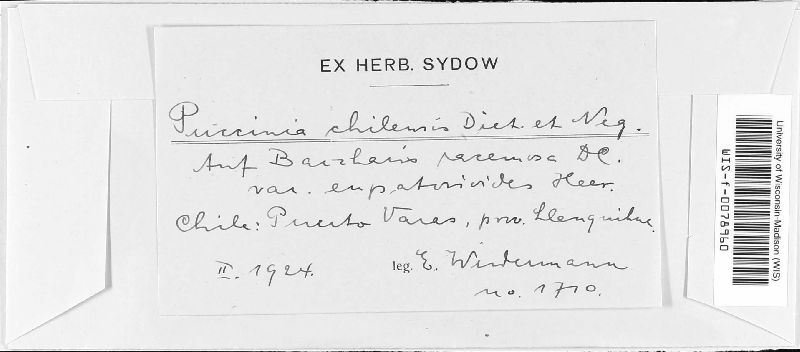 EX HERB. SYDOW
Puccinia chilensis Diet. et Neg.
Auf Baccharis racemosa DC.
var. eupatorioides Heer.
Chile: Puerto Varas, prov. Llanquihue.
II. 1924. leg. E. Werdermann
no. 1710.
University of Wisconsin-Madison (WIS)
WIS-f-0078960